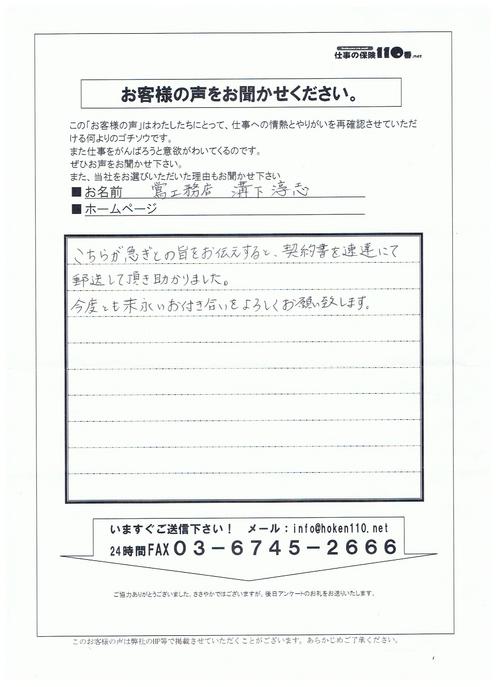 仕事の保険110番.net
お客様の声をお聞かせください。
この「お客様の声」はわたしたちにとって、仕事への情熱とやりがいを再確認させていただ
ける何よりのゴチソウです。
また仕事をがんばろうと意欲がわいてくるのです。
ぜひお声をお聞かせ下さい。
また、当社をお選びいただいた理由もお聞かせ下さい
■お名前 工務店 溝下 淳志
■ホームページ
こちらが急ぎとの旨をお伝えすると、契約書を速達にて
郵送して頂き助かりました。
今度とも末永いお付き合いをよろしくお願い致します。
いますぐご送信下さい! メール:info@hoken110.net
24時間FAX03-6745-2666
ご協力ありがとうございました。ささやかではございますが、後日アンケートのお礼をお送りいたします。
このお客様の声は弊社のHP等で掲載させていただくことがございます。あらかじめご了承ください。